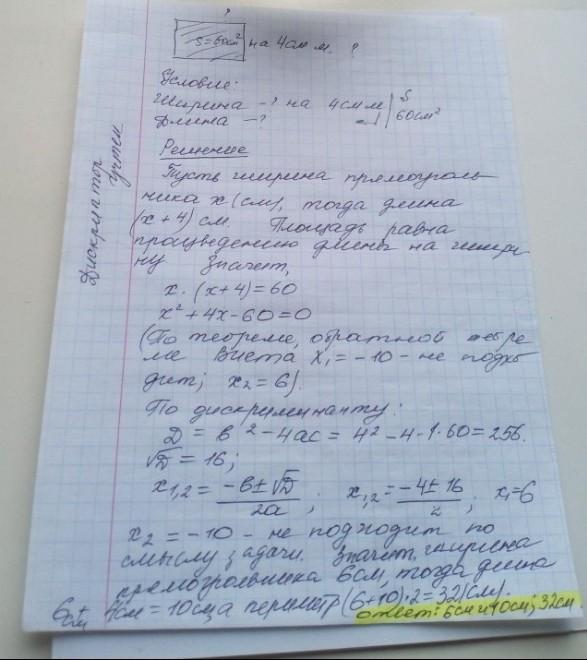 ?
S=60см² на 4см м. ?
Условие:
Ширина -? на 4см м S
Длина -? 60см²
Решение
Пусть ширина прямоуголь-
ника x (см), тогда длина
(x+4) см. Площадь равна
произведению длины на шири-
ну Значит,
x · (x+4)=60
x²+4x-60=0
(По теореме, обратной теоре
ме Виета x₁=-10 - не подхо
дит; x₂=6).
По дискриминанту:
D = b²-4ac = 4²-4·1·60=256.
√D = 16;
x₁,₂ = (-b±√D)/2a ; x₁,₂ = (-4±16)/2 ; x₁=6
x₂ = -10 - не подходит по
смыслу задачи. Значит, ширина
прямоугольника 6см, тогда длина
6см + 4см = 10см, а периметр (6+10)·2=32(см).
ответ: 6см и 10см; 32см.
Дискриптор
учтен